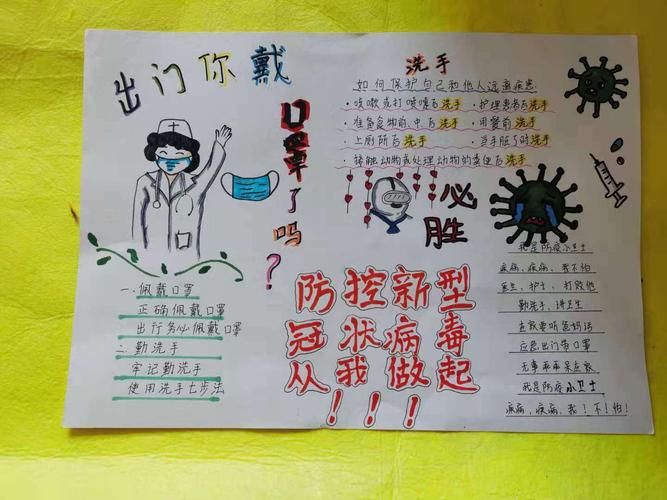 出门你戴
口罩了吗?
洗手
如何保护自己和他人远离疾患
·咳嗽或打喷嚏后洗手 ·护理患者后洗手
·准备食物前.中.后洗手 ·用餐前洗手
·上厕所后洗手 ·当手脏了时洗手
·接触动物或处理动物的粪便后洗手
必
胜
一.佩戴口罩
正确佩戴口罩
出行务必佩戴口罩
二.勤洗手
牢记勤洗手
使用洗手七步法
防控新型
冠状病毒
从我做起
!!!
我是防疫小卫士
疾病、疾病、我不怕
医生、护士、打败他
勤洗手、讲卫生
在家要听爸妈话
应急出门带口罩
无事乖乖呆在家
我是防疫小卫士
疾病,疾病,我!不!怕!